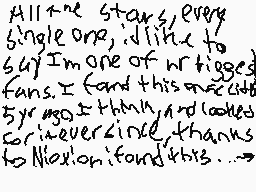 All the stars, every
single one, id like to
say I'm one of ur bigges
fans. I found this
5yr ago I think, and looked
for it ever since, thanks
to Nioxion i found this...→